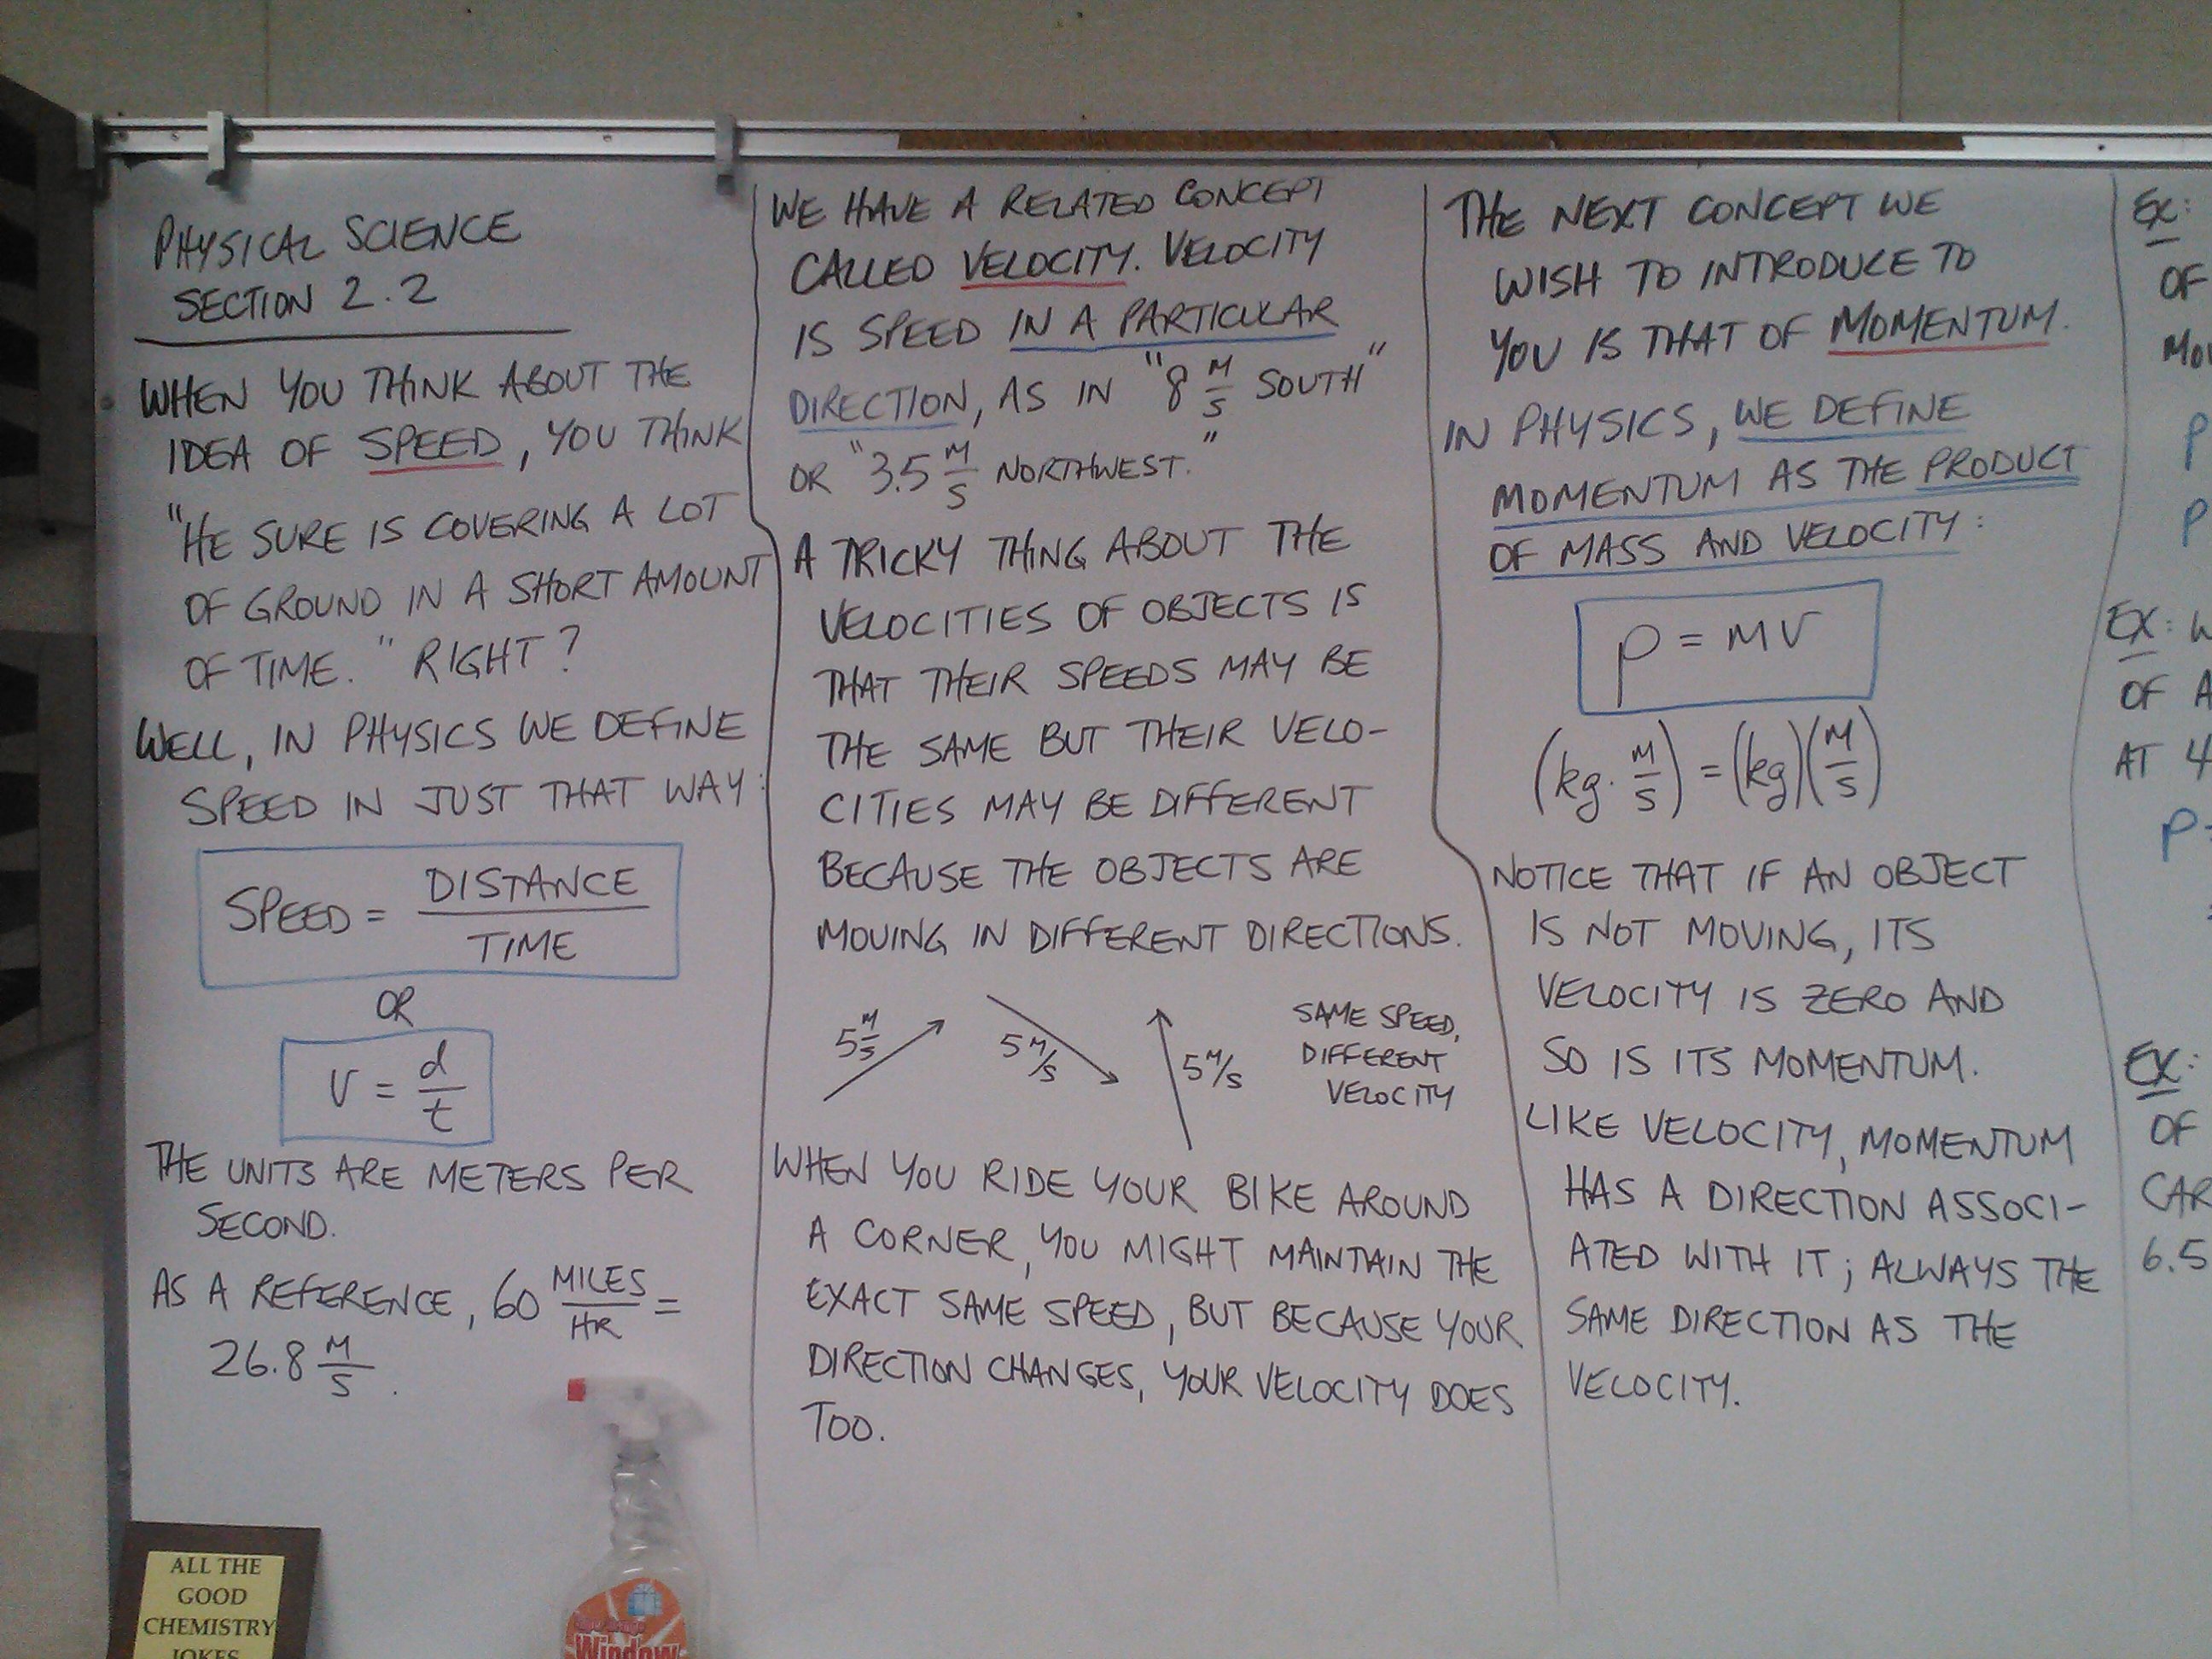 PHYSICAL SCIENCE
SECTION 2.2
WHEN YOU THINK ABOUT THE
IDEA OF SPEED, YOU THINK
"HE SURE IS COVERING A LOT
OF GROUND IN A SHORT AMOUNT
OF TIME." RIGHT?
WELL, IN PHYSICS WE DEFINE
SPEED IN JUST THAT WAY:
SPEED = DISTANCE / TIME
OR
V = d / t
THE UNITS ARE METERS PER
SECOND.
AS A REFERENCE, 60 MILES / HR =
26.8 M / S.
WE HAVE A RELATED CONCEPT
CALLED VELOCITY. VELOCITY
IS SPEED IN A PARTICULAR
DIRECTION, AS IN "8 M / S SOUTH"
OR "3.5 M / S NORTHWEST."
A TRICKY THING ABOUT THE
VELOCITIES OF OBJECTS IS
THAT THEIR SPEEDS MAY BE
THE SAME BUT THEIR VELO-
CITIES MAY BE DIFFERENT
BECAUSE THE OBJECTS ARE
MOVING IN DIFFERENT DIRECTIONS.
5 M / S
5 M/S
5 M/S
SAME SPEED,
DIFFERENT
VELOCITY
WHEN YOU RIDE YOUR BIKE AROUND
A CORNER, YOU MIGHT MAINTAIN THE
EXACT SAME SPEED, BUT BECAUSE YOUR
DIRECTION CHANGES, YOUR VELOCITY DOES
TOO.
THE NEXT CONCEPT WE
WISH TO INTRODUCE TO
YOU IS THAT OF MOMENTUM.
IN PHYSICS, WE DEFINE
MOMENTUM AS THE PRODUCT
OF MASS AND VELOCITY:
p = MV
(kg · M / S) = (kg)(M / S)
NOTICE THAT IF AN OBJECT
IS NOT MOVING, ITS
VELOCITY IS ZERO AND
SO IS ITS MOMENTUM.
LIKE VELOCITY, MOMENTUM
HAS A DIRECTION ASSOCI-
ATED WITH IT; ALWAYS THE
SAME DIRECTION AS THE
VELOCITY.
EX:
OF
P
P
EX: W
OF A
AT 4
P =
=
EX:
OF
CAR
6.5
ALL THE
GOOD
CHEMISTRY
JOKES
Window